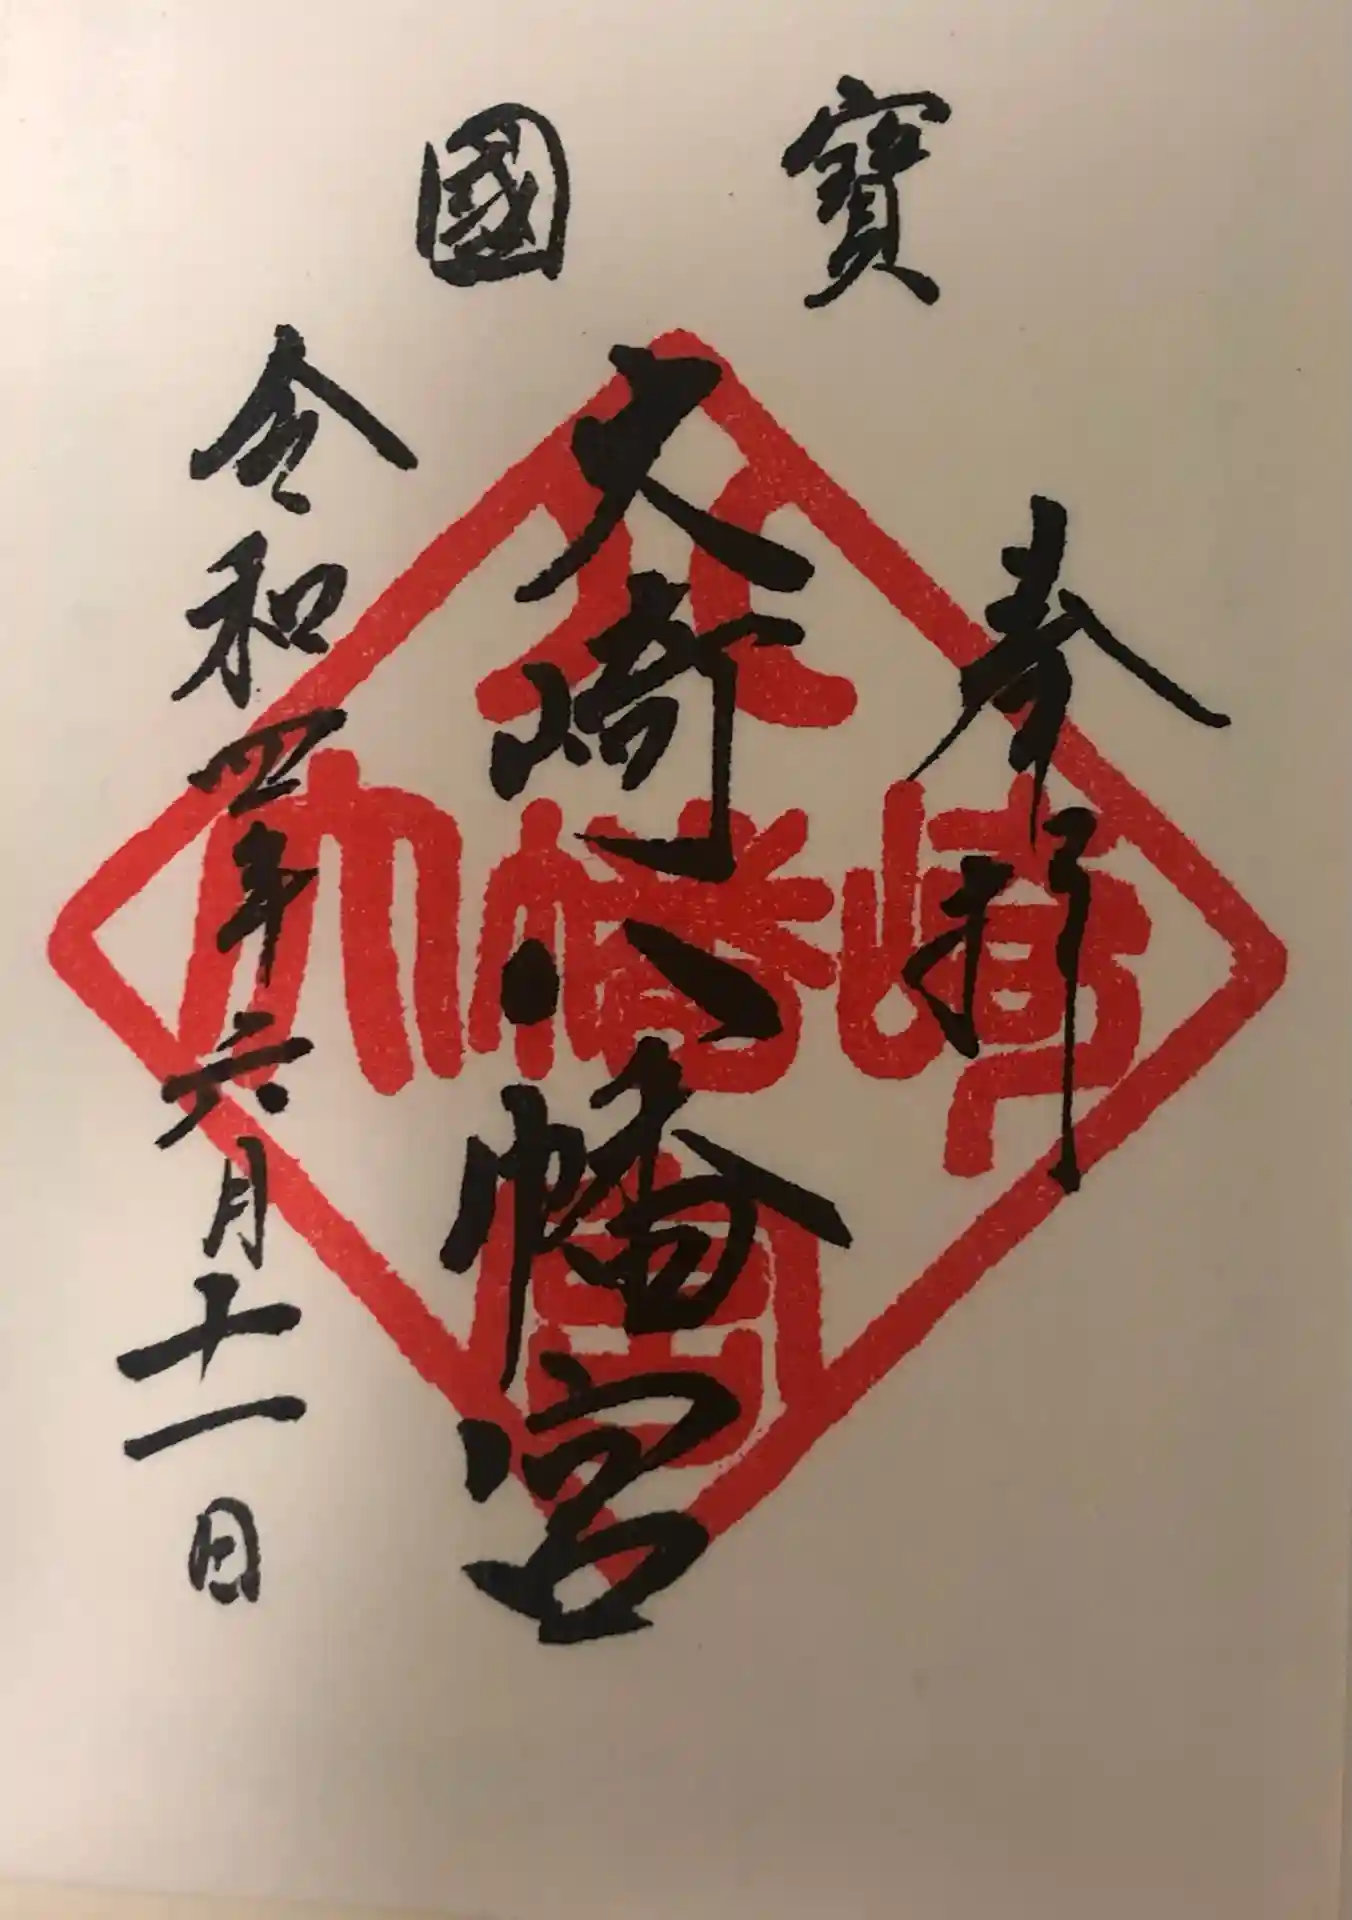 國寶
奉拝
大崎八幡宮
令和四年六月十一日
大崎八幡宮